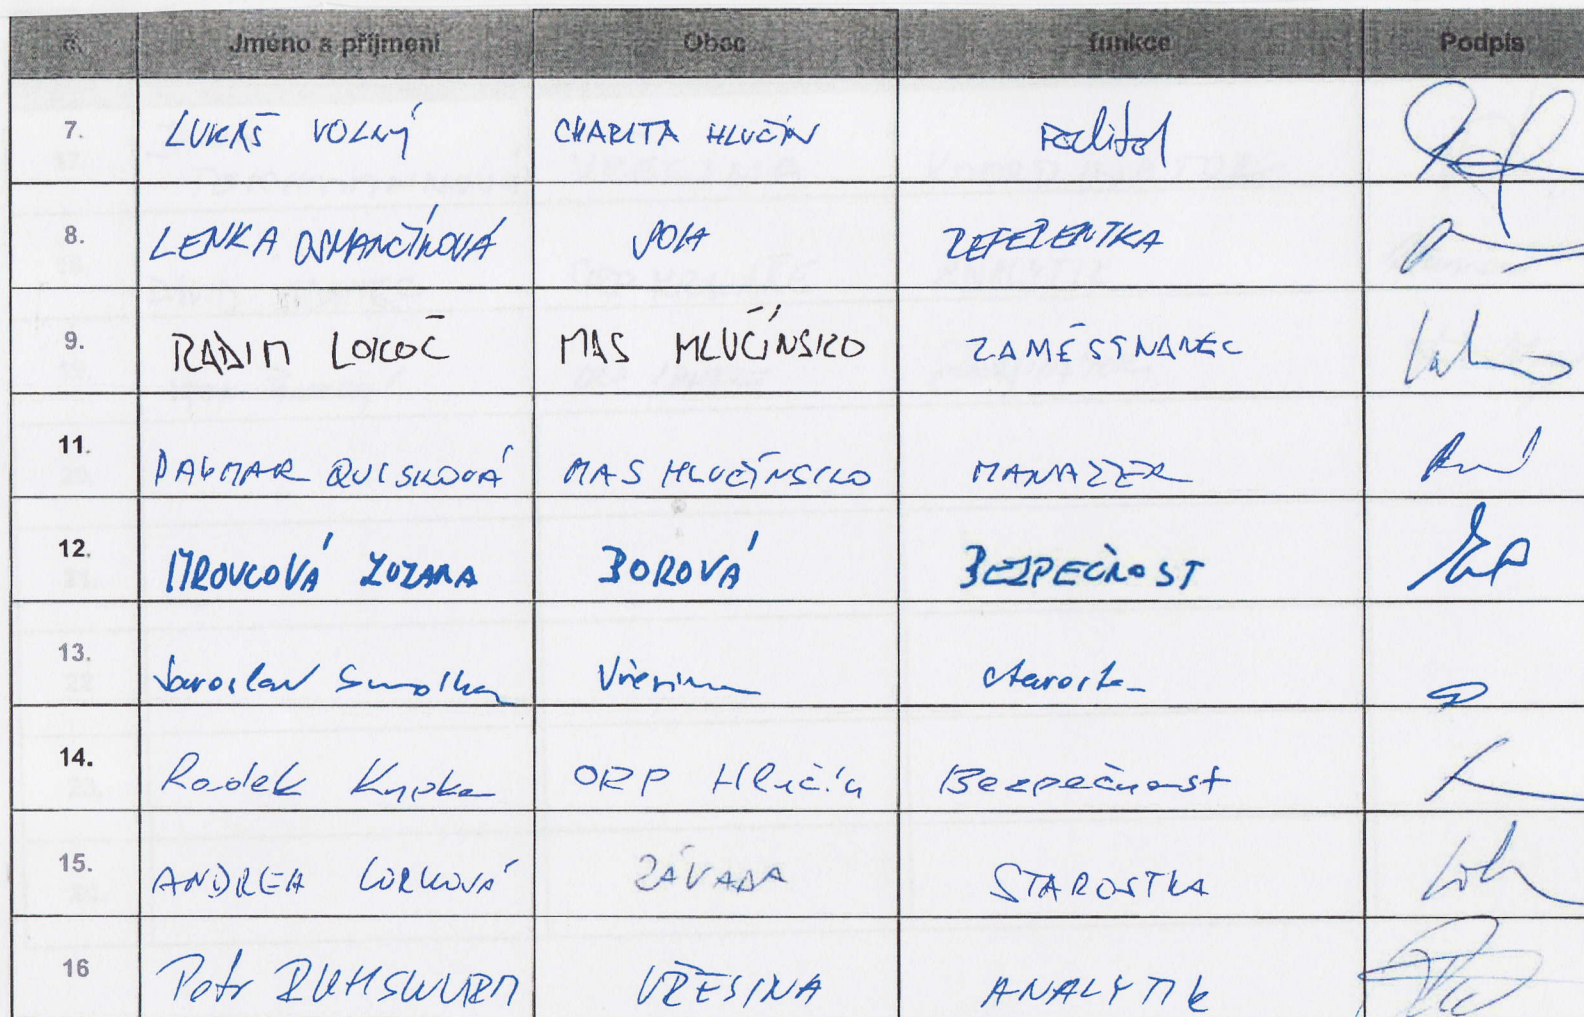 č. Jméno a příjmení Obec funkce Podpis
7. LUKÁŠ VOLNÝ CHARITA HLUČÍN ředitel
8. LENKA OSMANČÍKOVÁ REFERENTKA
9. RADIM LOKOČ MAS HLUČÍNSKO ZAMĚSTNANEC
11. DAGMAR QUISKOVÁ MAS HLUČÍNSKO MANAŽER
12. MROVCOVÁ ZUZANA BOROVÁ BEZPEČNOST
13. Jaroslav Smolka Vřesina starosta
14. Radek Kypka ORP Hlučín Bezpečnost
15. ANDREA ZÁVADA STAROSTKA
16 Petr RUHSWURM VŘESINA ANALYTIK